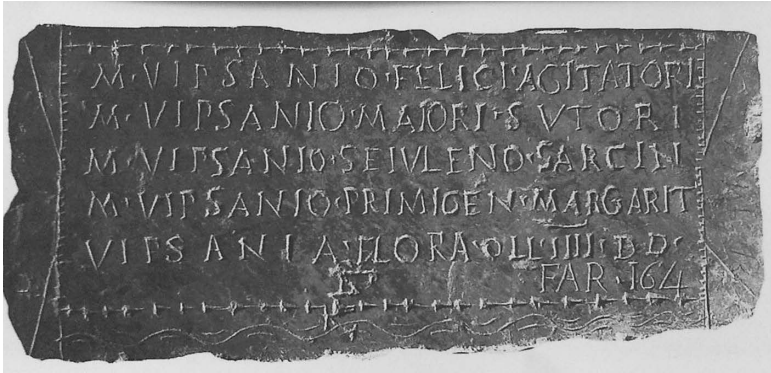 M·VIPSANIO·FELICI·AGITATORI
M·VIPSANIO·MAIORI·SVTORI
M·VIPSANIO·SEIVLENO·SARCIII
M·VIPSANIO·PRIMIGEN·MARGARIT
VIPSANIA·FLORA·OLL·IIII·D·D·
FAR·164